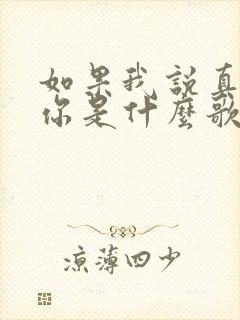 如果我說真
你是什麼歌
涼薄四少